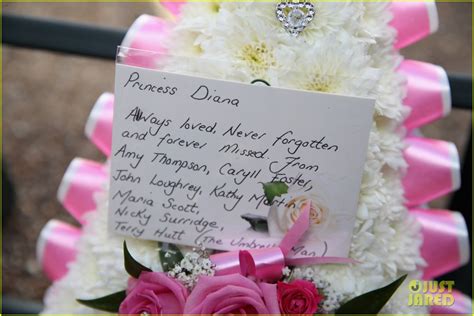 Princess Diana
Always loved, Never forgotten
and forever missed. From
Amy Thompson, Caryll Foster,
John Loughrey, Kathy Martin,
Maria Scott,
Nicky Surridge,
Terry Hutt (The Umbrella Man)
JUST
JARED